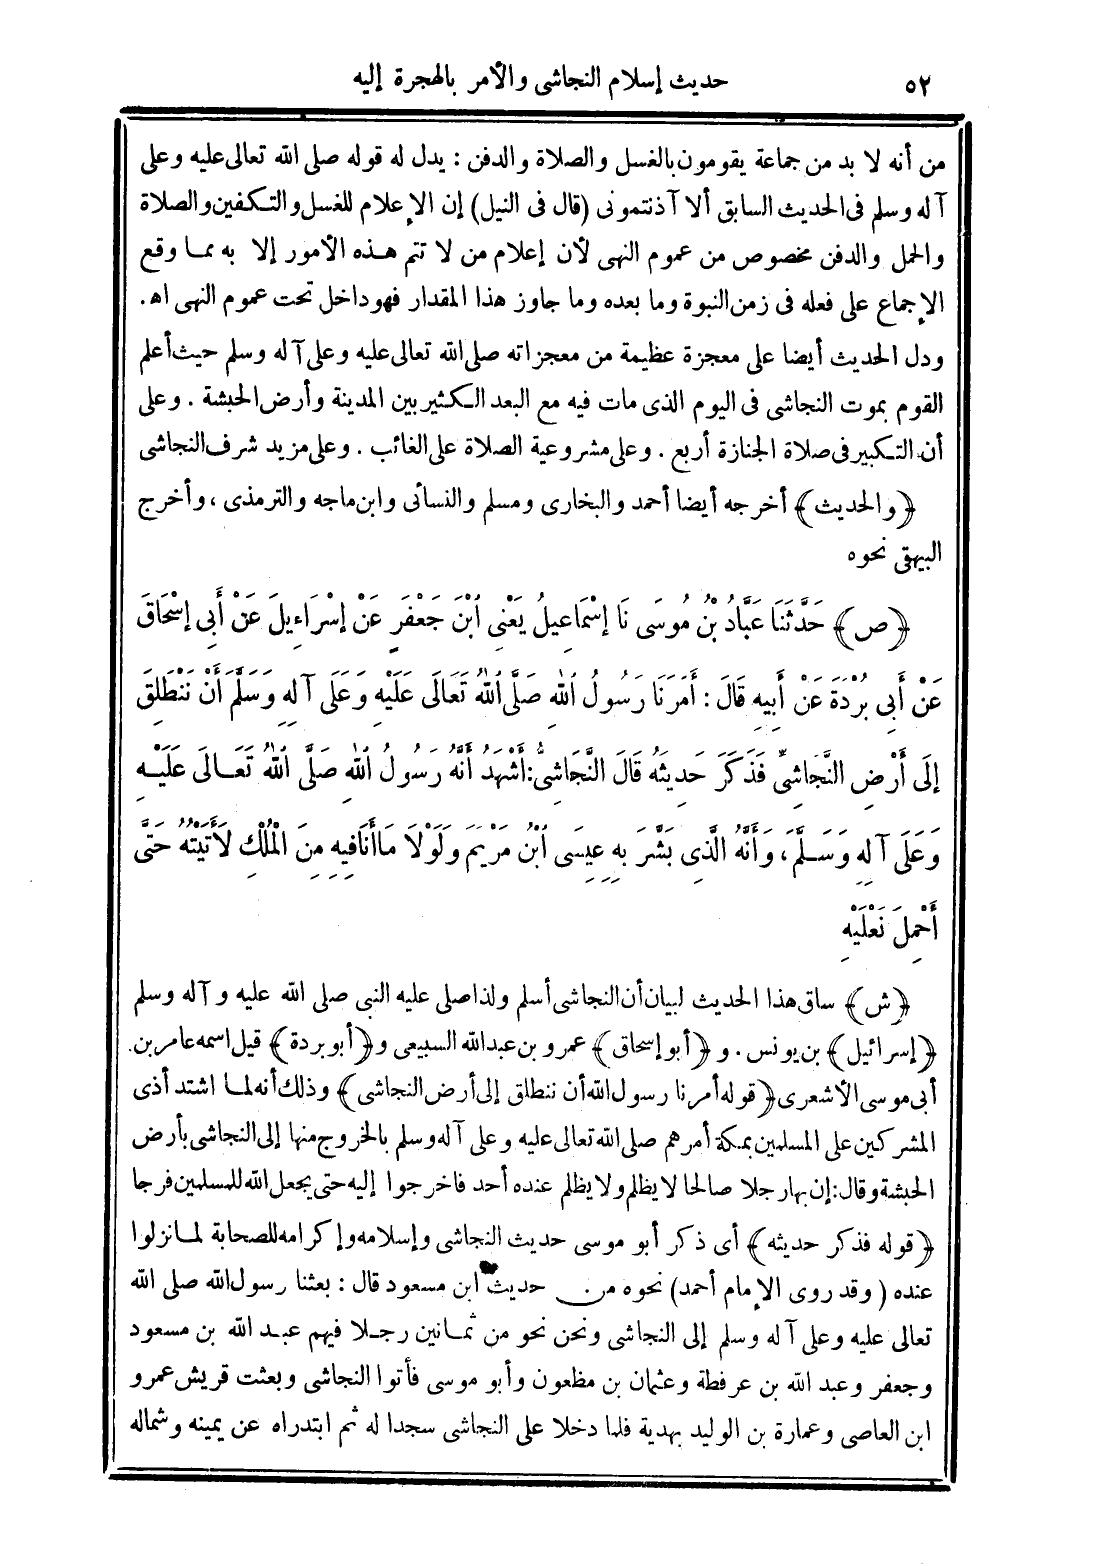 ٥٢ حديث إسلام النجاشى والأمر بالهجرة إليه
من أنه لا بد من جماعة يقومون بالغسل والصلاة والدفن : يدل له قوله صلى الله تعالى عليه وعلى
آله وسلم فى الحديث السابق ألا آذنتمونى (قال فى النيل) إن الإعلام للغسل والتكفين والصلاة
والحمل والدفن مخصوص من عموم النهى لأن إعلام من لا تتم هذه الأمور إلا به مما وقع
الإجماع على فعله فى زمن النبوة وما بعده وما جاوز هذا المقدار فهو داخل تحت عموم النهى اه .
ودل الحديث أيضا على معجزة عظيمة من معجزاته صلى الله تعالى عليه وعلى آله وسلم حيث أعلم
القوم بموت النجاشى فى اليوم الذى مات فيه مع البعد الكثير بين المدينة وأرض الحبشة . وعلى
أن التكبير فى صلاة الجنازة أربع . وعلى مشروعية الصلاة على الغائب . وعلى مزيد شرف النجاشى
﴿والحديث﴾ أخرجه أيضا أحمد والبخارى ومسلم والنسائى وابن ماجه والترمذى ، وأخرج
البيهقى نحوه
﴿ص﴾ حَدَّثَنَا عَبَّادُ بْنُ مُوسَى نَا إِسْمَاعِيلُ يَعْنِى ابْنَ جَعْفَرٍ عَنْ إِسْرَاءِيلَ عَنْ أَبِى إِسْحَاقَ
عَنْ أَبِى بُرْدَةَ عَنْ أَبِيهِ قَالَ : أَمَرَنَا رَسُولُ اللهِ صَلَّى اللهُ تَعَالَى عَلَيْهِ وَعَلَى آلِهِ وَسَلَّمَ أَنْ نَنْطَلِقَ
إِلَى أَرْضِ النَّجَاشِىِّ فَذَكَرَ حَدِيثَهُ قَالَ النَّجَاشِىُّ: أَشْهَدُ أَنَّهُ رَسُولُ اللهِ صَلَّى اللهُ تَعَالَى عَلَيْهِ
وَعَلَى آلِهِ وَسَلَّمَ، وَأَنَّهُ الَّذِى بَشَّرَ بِهِ عِيسَى ابْنُ مَرْيَمَ وَلَوْلَا مَا أَنَا فِيهِ مِنَ الْمُلْكِ لَأَتَيْتُهُ حَتَّى
أَحْمِلَ نَعْلَيْهِ
﴿ش﴾ ساق هذا الحديث لبيان أن النجاشى أسلم ولذا صلى عليه النبى صلى الله عليه وآله وسلم
﴿إسرائيل﴾ بن يونس . و ﴿أبو إسحاق﴾ عمرو بن عبد الله السبيعى و ﴿أبو بردة﴾ قيل اسمه عامر بن
أبى موسى الأشعرى ﴿قوله أمرنا رسول الله أن ننطلق إلى أرض النجاشى﴾ وذلك أنه لما اشتد أذى
المشركين على المسلمين بمكة أمرهم صلى الله تعالى عليه وعلى آله وسلم بالخروج منها إلى النجاشى بأرض
الحبشة وقال: إن بها رجلا صالحا لا يظلم ولا يظلم عنده أحد فاخرجوا إليه حتى يجعل الله للمسلمين فرجا
﴿قوله فذكر حديثه﴾ أى ذكر أبو موسى حديث النجاشى وإسلامه وإكرامه للصحابة لما نزلوا
عنده (وقد روى الإمام أحمد) نحوه من حديث ابن مسعود قال : بعثنا رسول الله صلى الله
تعالى عليه وعلى آله وسلم إلى النجاشى ونحن نحو من ثمانين رجلا فيهم عبد الله بن مسعود
وجعفر وعبد الله بن عرفطة وعثمان بن مظعون وأبو موسى فأتوا النجاشى وبعثت قريش عمرو
ابن العاصى وعمارة بن الوليد بهدية فلما دخلا على النجاشى سجدا له ثم ابتدراه عن يمينه وشماله